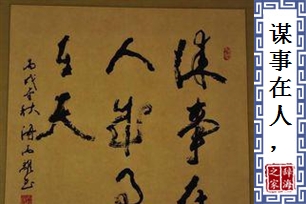 谋事在人，
辞海
之家
谋事在
人成事
在天
丙戌金秋